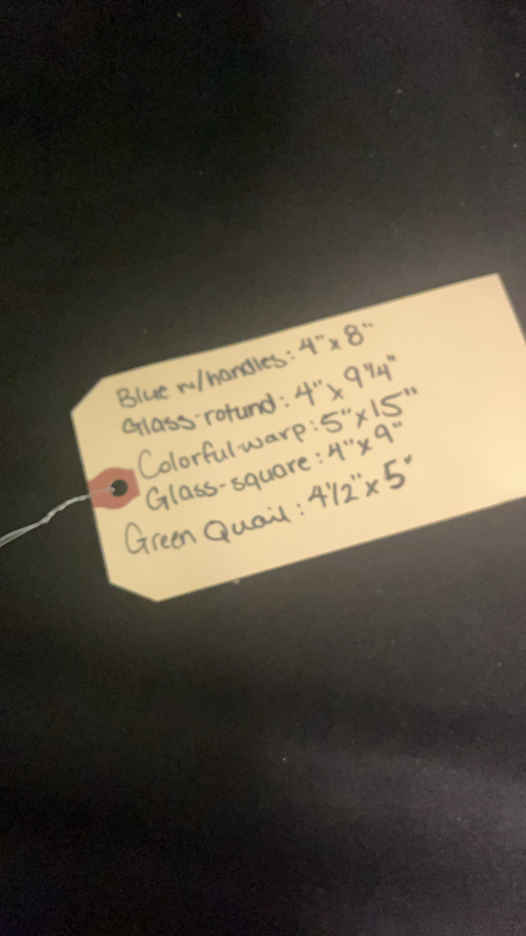 Blue w/handles: 4" x 8"
Glass-rotund: 4" x 9 1/4"
Colorful-warp: 5" x 15"
Glass-square: 4" x 9"
Green Quail: 4 1/2" x 5"